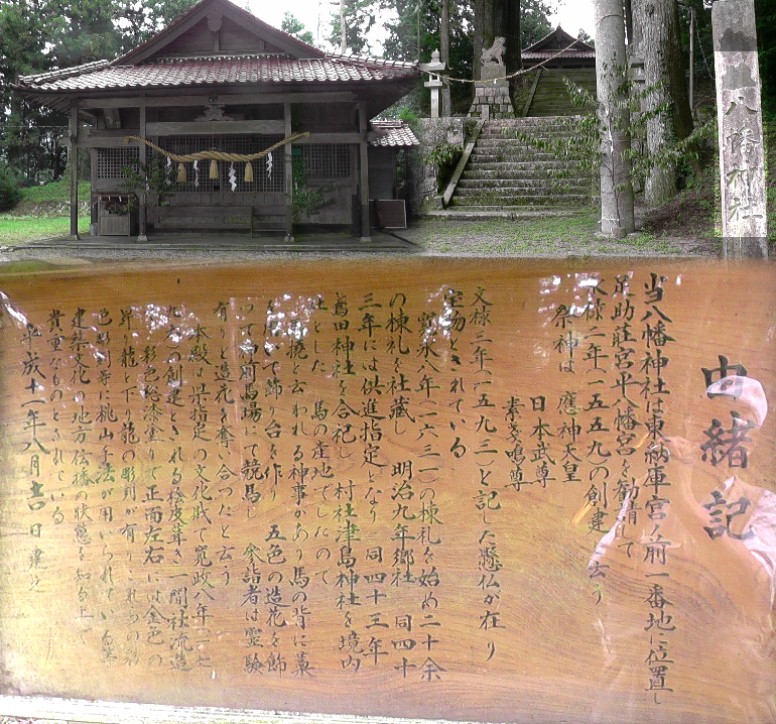 八幡神社
由緒記
当八幡神社は東納庫宮ノ前一番地に位置し
足助荘宮平八幡宮を勧請して
永禄二年(一五五九)の創建と云う
祭神は 應神天皇
日本武尊
素戔嗚尊
文禄三年(一五九三)と記した懸仏が在り
宝物とされている
寛永八年(一六三一)の棟札を始め二十余
の棟札を社蔵し 明治九年郷社 同四十
三年には供進指定となり 同四十三年
嶌田神社を合祀し 村社津島神社を境内
社とした 馬の産地でしたので
と云われる神事があり馬の背に藁
を用いて飾り台を作り 五色の造花を飾
って御前馬場にて競馬し 参詣者は霊験
有りと造花を奪い合ったと云う
本殿は県指定の文化財で寛政八年(一七
九六)の創建とされる桧皮葺き一間社流造
彩色総漆塗りで正面左右には金色の
昇り龍と下り龍の彫刻が有り
色彫刻等に桃山手法が用いられている等
建築文化の地方伝播の状態を知る上で
貴重なものとされている
平成十一年八月吉日建之